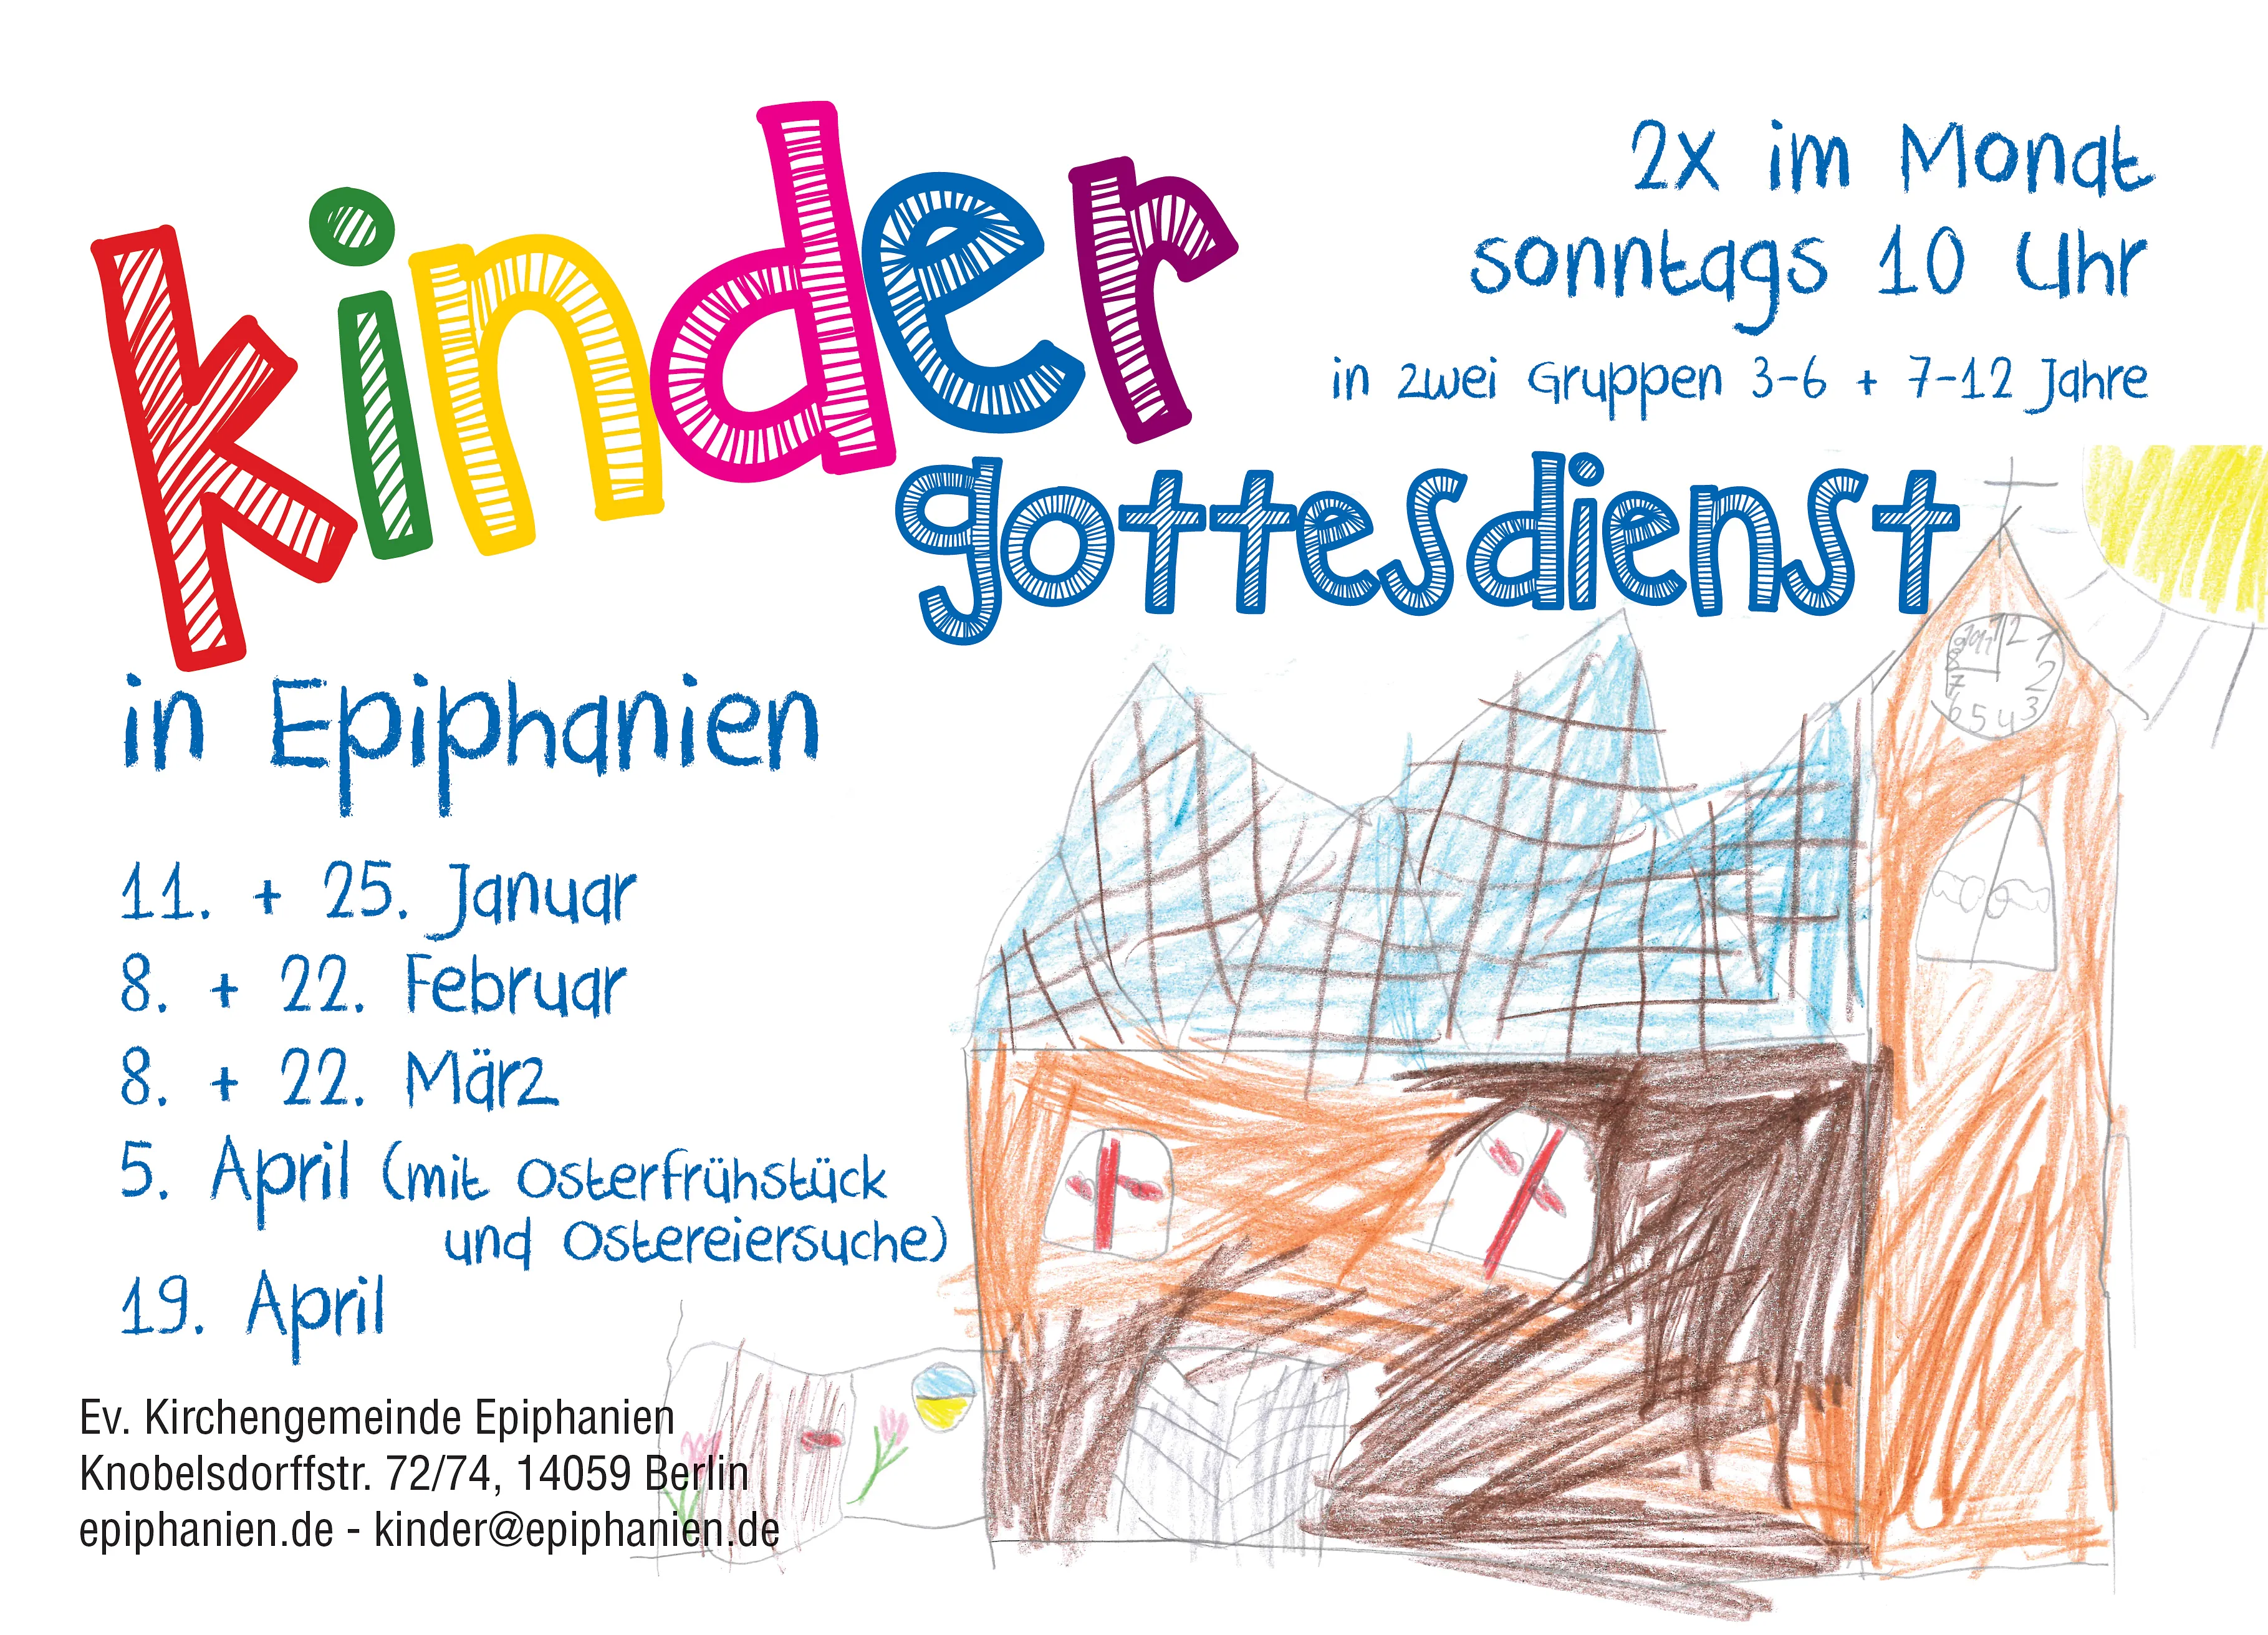 kinder
gottesdienst
2x im Monat
sonntags 10 Uhr
in zwei Gruppen 3-6 + 7-12 Jahre
in Epiphanien
11. + 25. Januar
8. + 22. Februar
8. + 22. März
5. April (mit Osterfrühstück
und Ostereiersuche)
19. April
Ev. Kirchengemeinde Epiphanien
Knobelsdorffstr. 72/74, 14059 Berlin
epiphanien.de - kinder@epiphanien.de